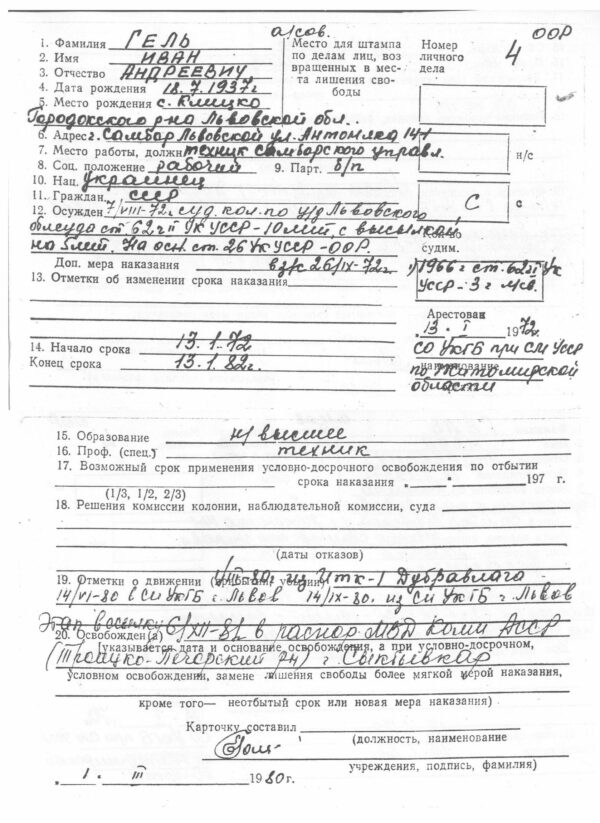 а/сов. ООР
1. Фамилия ГЕЛЬ
2. Имя ИВАН
3. Отчество АНДРЕЕВИЧ
4. Дата рождения 18.7.1937г
5. Место рождения с. Клицко
Городокского р-на Львовской обл.
Место для штампа
по делам лиц, воз
вращенных в мес-
та лишения сво-
боды
Номер
личного
дела
4
6. Адрес г. Самбор Львовской ул. Антоняка 14/1
7. Место работы, должн техник Самборского управл.
н/с
8. Соц. положение рабочий 9. Парт. б/п
10. Нац. Украинец
11. Граждан. СССР
С с
12. Осужден 7/VIII-72г. суд. кол. по у/д Львовского
облсуда ст 62 ч II УК УССР-10 лит, с высылкой
на 5 лит. На осн. ст. 26 УК УССР-ООР.
Кол-во
судим.
Доп. мера наказания в з/с 26/IX-72г.
1) 1966 г ст. 62 ч I УК
УССР-3 г
13. Отметки об изменении срока наказания
Арестован
13. I 1972г.
14. Начало срока 13.1.72
Конец срока 13.1.82г.
СО УКГБ при СМ УССР
наименование
по Житомирской
области
15. Образование н/высшее
16. Проф. (спец.) техник
17. Возможный срок применения условно-досрочного освобождения по отбытии
срока наказания „ “ 197 г.
(1/3, 1/2, 2/3)
18. Решения комиссии колонии, наблюдательной комиссии, суда
(даты отказов)
19. Отметки о движении (прибытии, убытии) из ИТК-1 Дубравлага
14/VI-80 в СИ УКГБ г. Львов 14/IX-80. из СИ УКГБ г. Львов
Этап в ссылку 6/XII-81 в распор. МВД Коми АССР
20. Освобожден(а)
(указывается дата и основание освобождения, а при условно-досрочном,
(Троицко-Печорский р-н) г. Сыктывкар
условном освобождении, замене лишения свободы более мягкой мерой наказания,
кроме того— неотбытый срок или новая мера наказания)
Карточку составил
(должность, наименование
учреждения, подпись, фамилия)
„ 1 “ III 1980г.